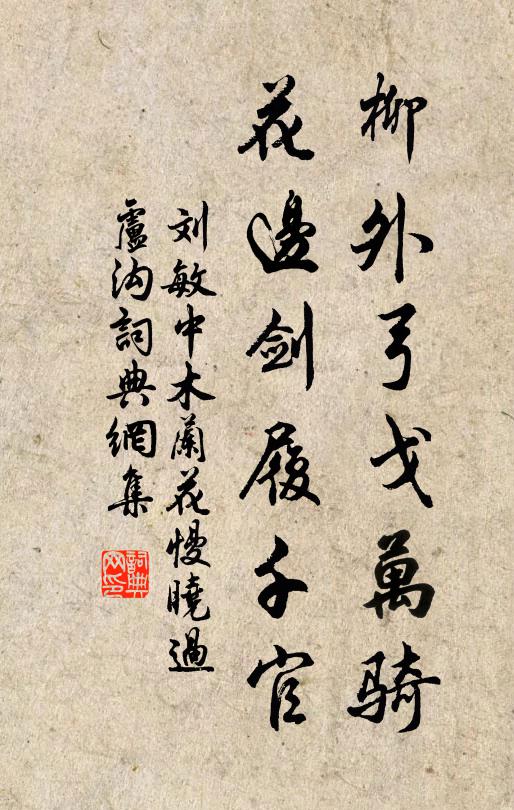 柳外弓戈萬騎
花邊劍履千官
刘敏中木蘭花慢曉過
盧沟詞典網集
詞典网印